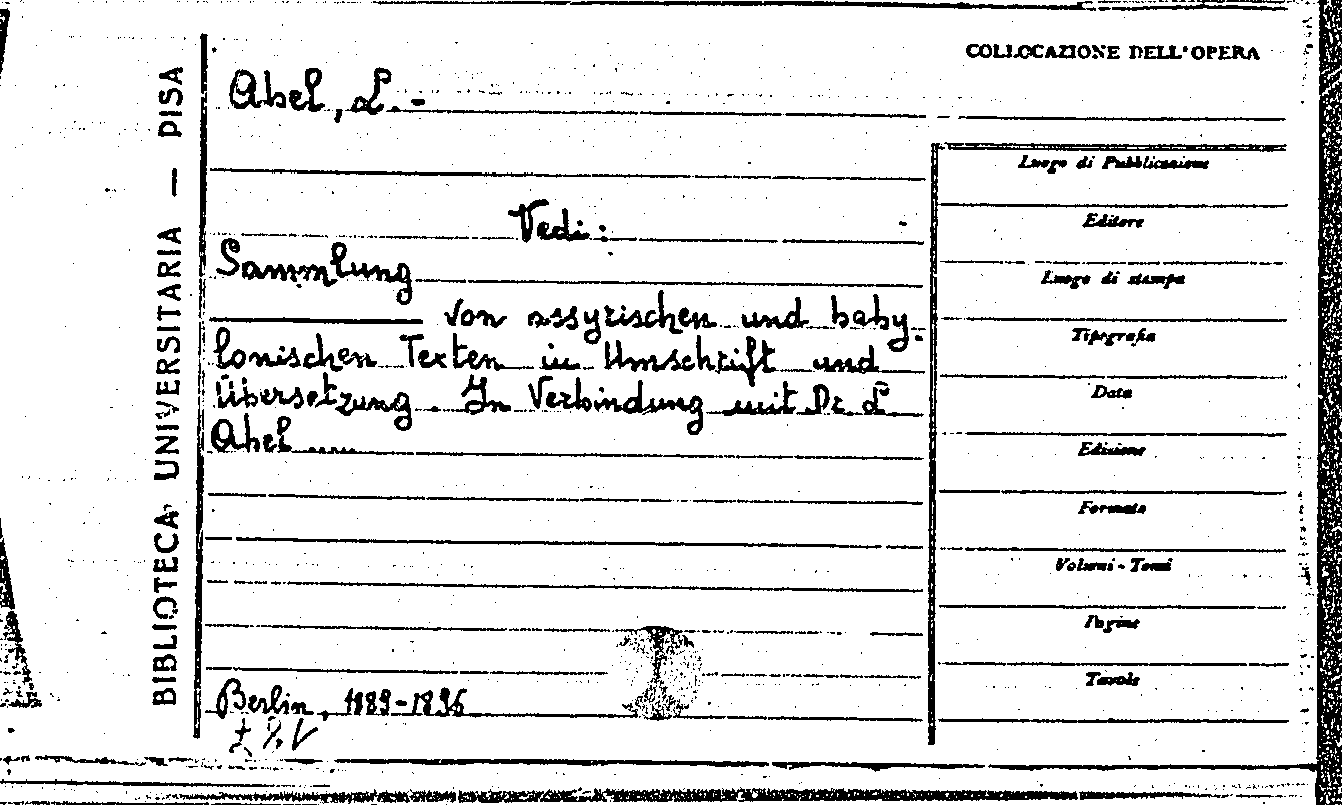 COLLOCAZIONE DELL'OPERA
BIBLIOTECA UNIVERSITARIA — PISA
Abel, L. -
Vedi:
Sammlung
von assyrischen und baby-
lonischen Texten in Umschrift und
Übersetzung. In Verbindung mit Dr. L
Abel ....
Berlin, 1889-1896
Luogo di Pubblicazione
Editore
Luogo di stampa
Tipografia
Data
Edizione
Formato
Volumi - Tomi
Pagine
Tavole